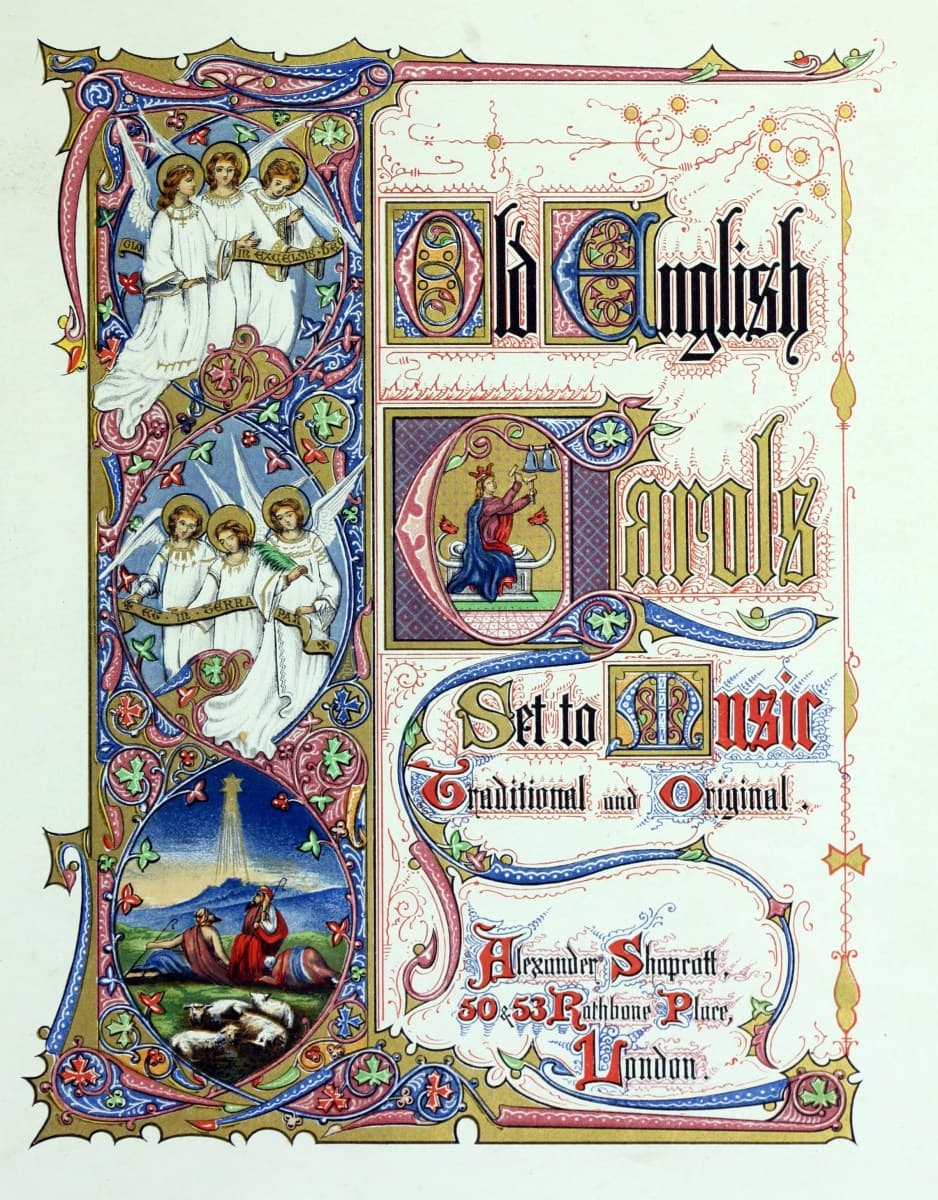 GLO IN EXCELSIS · DEO
Old English
Carols
ET · IN · TERRA PAX
Set to Music
Traditional and Original.
Alexander Shapcott,
50 & 53 Rathbone Place,
London.